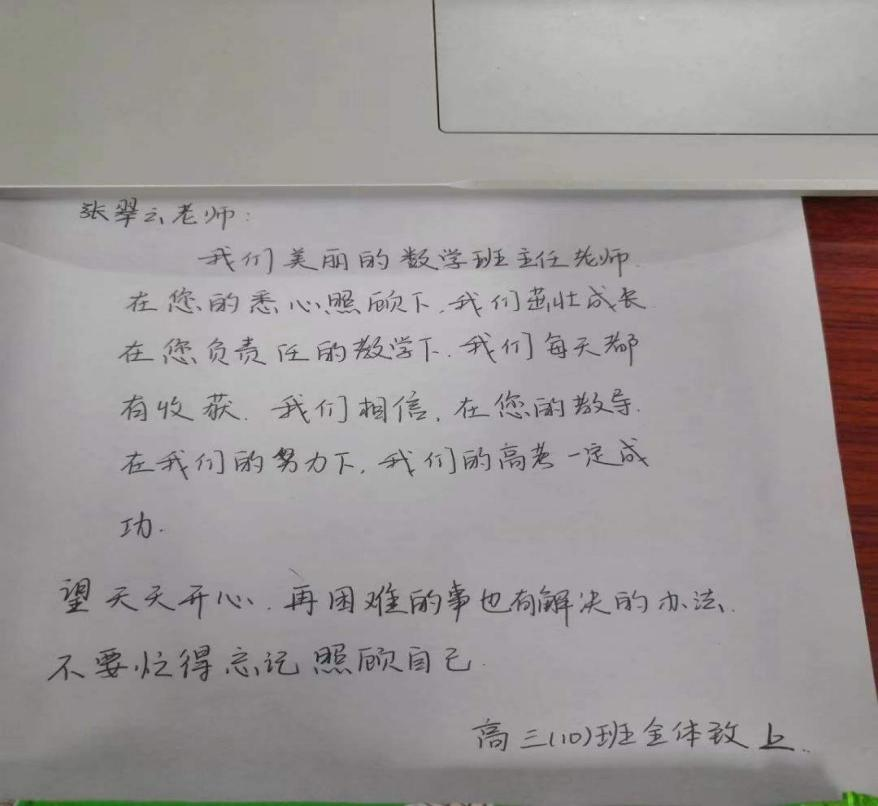 张翠云老师:
我们美丽的数学班主任老师.
在您的悉心照顾下.我们茁壮成长
在您负责任的教学下.我们每天都
有收获.我们相信,在您的教导.
在我们的努力下,我们的高考一定成
功.
望天天开心.再困难的事也有解决的办法.
不要忙得忘记照顾自己.
高三(10)班全体致上.